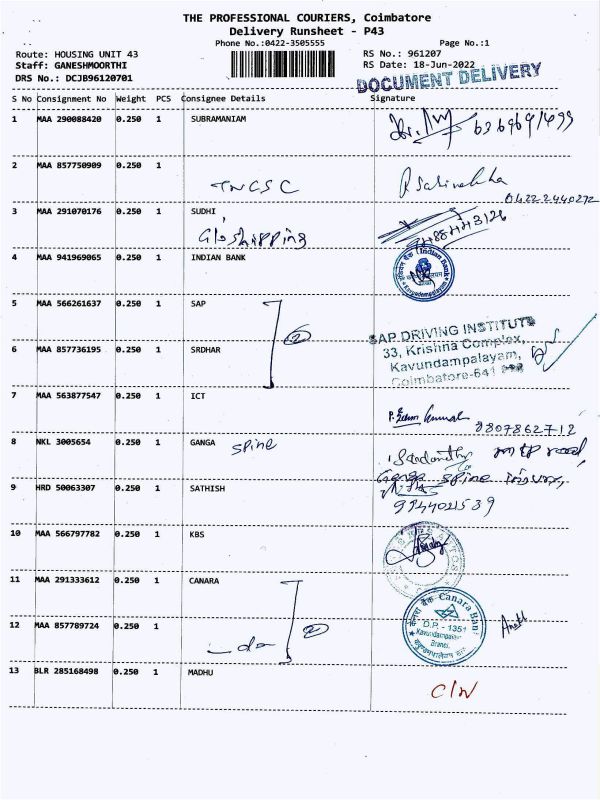 THE PROFESSIONAL COURIERS, Coimbatore
Delivery Runsheet - P43
Phone No.:0422-3505555 Page No.:1
Route: HOUSING UNIT 43 RS No.: 961207
Staff: GANESHMOORTHI RS Date: 18-Jun-2022
DRS No.: DCJB96120701
DOCUMENT DELIVERY
S No Consignment No Weight PCS Consignee Details Signature
1 MAA 290088420 0.250 1 SUBRAMANIAM
2 MAA 857750909 0.250 1
TNCSC
0422 2440272
3 MAA 291070176 0.250 1 SUDHI
Gloshipping
4 MAA 941969065 0.250 1 INDIAN BANK
Indian Bank
5 MAA 566261637 0.250 1 SAP
2
SAP DRIVING INSTITUTE
33, Krishna Complex,
6 MAA 857736195 0.250 1 SRDHAR
Kavundampalayam,
Coimbatore-641
7 MAA 563877547 0.250 1 ICT
8807862712
8 NKL 3005654 0.250 1 GANGA
spine
mtp road,
Ganga spine
9 HRD 50063307 0.250 1 SATHISH
10 MAA 566797782 0.250 1 KBS
11 MAA 291333612 0.250 1 CANARA
केनरा बैंक Canara Bank
D.P. - 1351
Kavundampalayam
Branch
12 MAA 857789724 0.250 1
do 2
13 BLR 285168498 0.250 1 MADHU
C/W